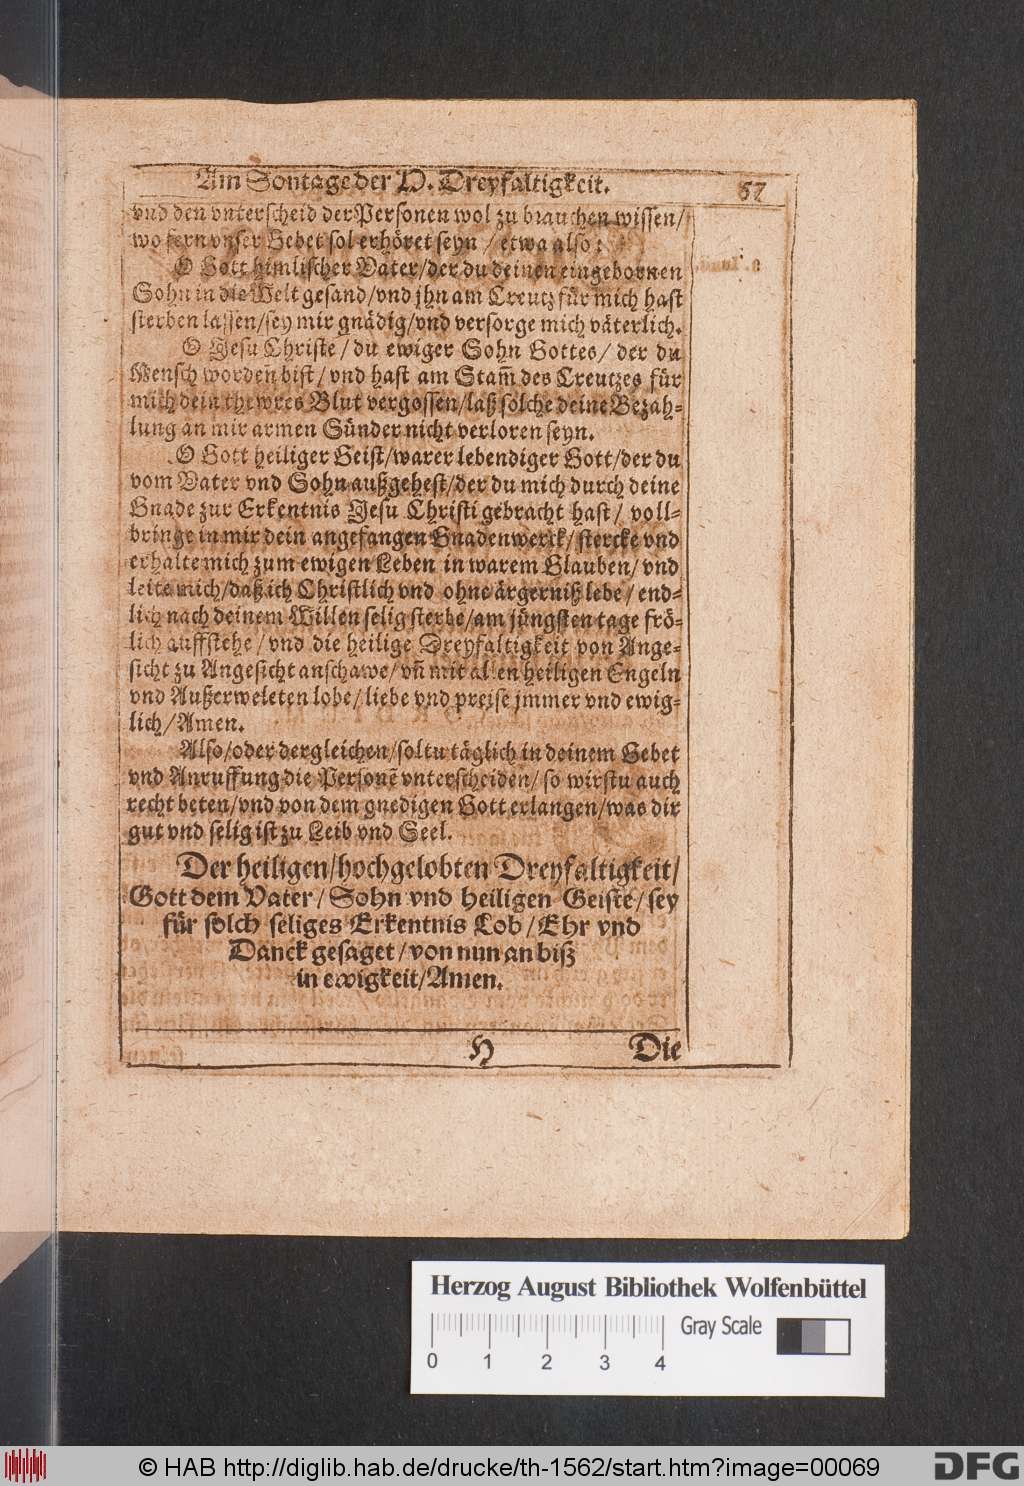 Am Sontage der H. Dreyfaltigkeit. 57
vnd den vnterscheid der Personen wol zu brauchen wissen/
wo fern vnser Gebet sol erhöret seyn / etwa also:
O Gott himlischer Vater/der du deinen eingebornen
Sohn in die Welt gesand/vnd jhn am Creutz für mich hast
sterben lassen/sey mir gnädig/vnd versorge mich väterlich.
O Jesu Christe / du ewiger Sohn Gottes/ der du
Mensch worden bist / vnd hast am Stam̃ des Creutzes für
mich dein thewres Blut vergossen/laß solche deine Bezah-
lung an mir armen Sünder nicht verloren seyn.
O Gott heiliger Geist/warer lebendiger Gott/der du
vom Vater vnd Sohn außgehest/der du mich durch deine
Gnade zur Erkentnis Jesu Christi gebracht hast / voll-
bringe in mir dein angefangen Gnadenwerck/ stercke vnd
erhalte mich zum ewigen Leben in warem Glauben/ vnd
leite mich/daß ich Christlich vnd ohne ärgerniß lebe / end-
lich nach deinem Willen selig sterbe/am jüngsten tage frö-
lich auffstehe / vnd die heilige Dreyfaltigkeit von Ange-
sicht zu Angesicht anschawe/ vñ mit allen heiligen Engeln
vnd Außerweleten lobe/ liebe vnd preise jmmer vnd ewig-
lich/Amen.
Also/oder dergleichen/soltu täglich in deinem Gebet
vnd Anruffung die Personẽ vnterscheiden/ so wirstu auch
recht beten/vnd von dem gnedigen Gott erlangen/was dir
gut vnd selig ist zu Leib vnd Seel.
Der heiligen/hochgelobten Dreyfaltigkeit/
Gott dem Vater / Sohn vnd heiligen Geiste / sey
für solch seliges Erkentnis Lob / Ehr vnd
Danck gesaget / von nun an biß
in ewigkeit/Amen.
H Die
Herzog August Bibliothek Wolfenbüttel
Gray Scale
0 1 2 3 4
© HAB http://diglib.hab.de/drucke/th-1562/start.htm?image=00069
DFG